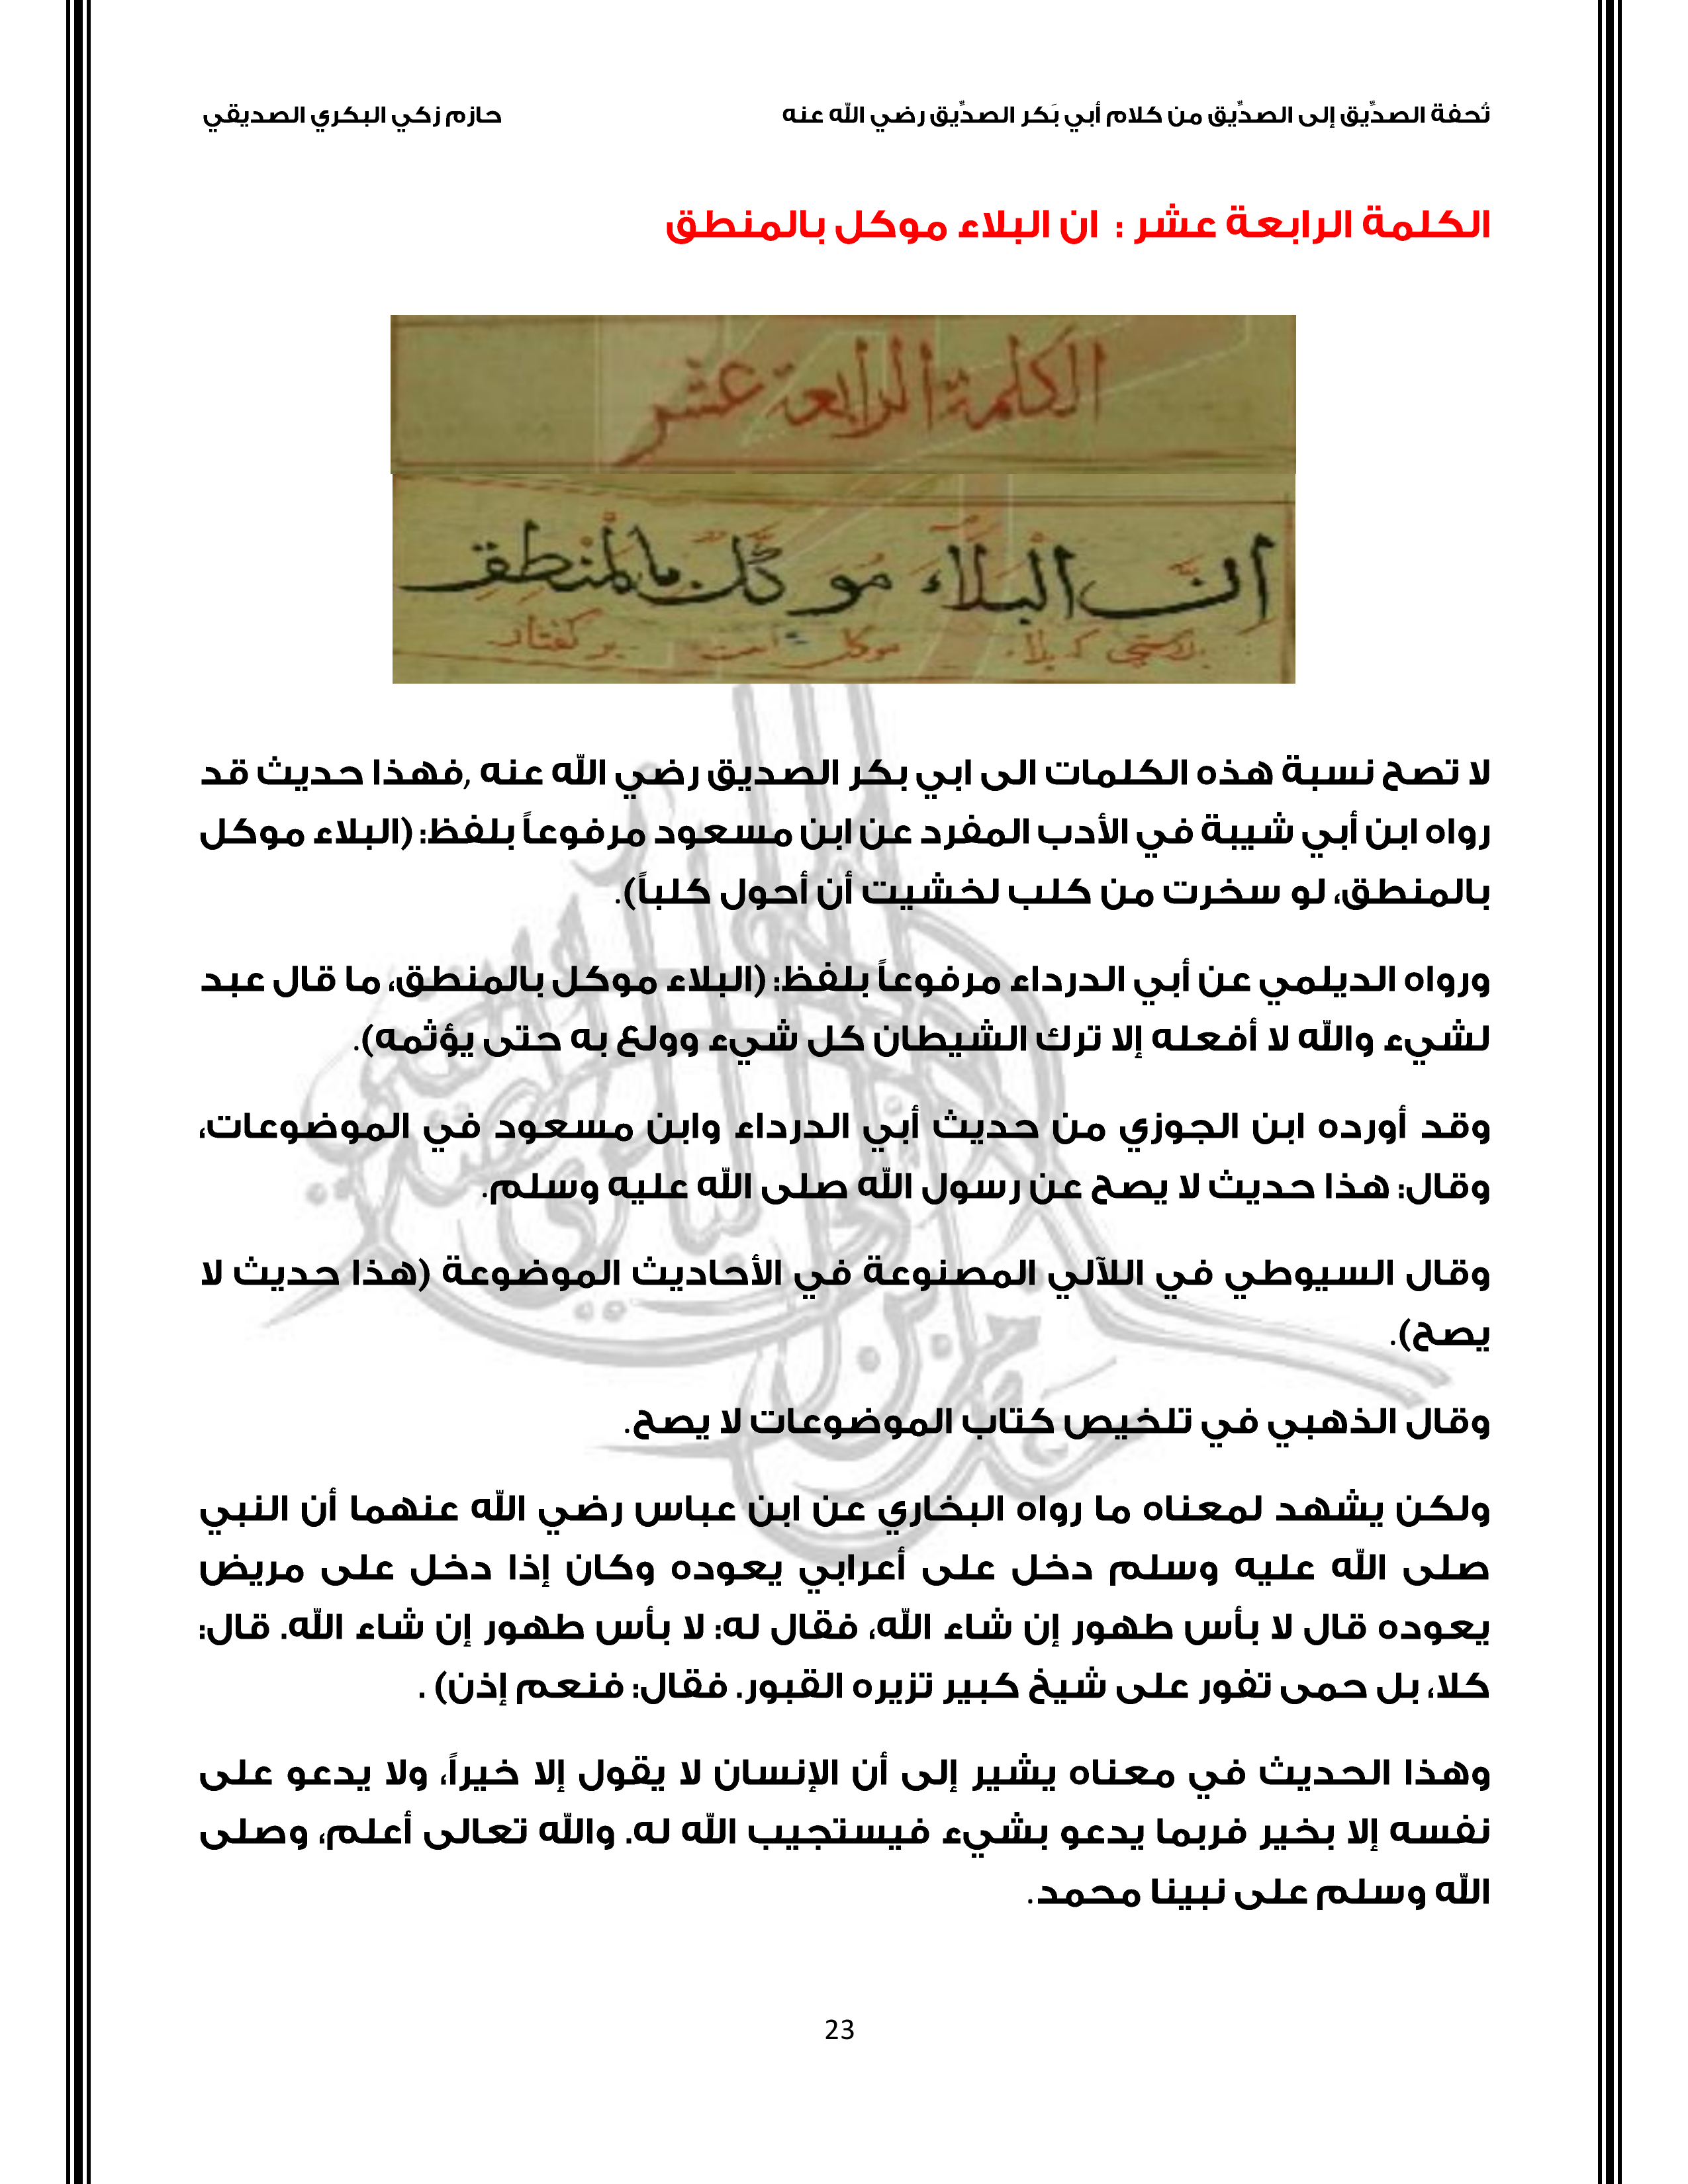 تُحفة الصدِّيق إلى الصدِّيق من كلام أبي بَكر الصدِّيق رضي الله عنه
حازم زكي البكري الصديقي
الكلمة الرابعة عشر : ان البلاء موكل بالمنطق
الكلمة الرابعة عشر
اِنَّ الْبَلَاءَ مُوَكَّلٌ بِالْمَنْطِقِ
بلا موكل است بر كفتار
لا تصح نسبة هذه الكلمات الى ابي بكر الصديق رضي الله عنه ,فهذا حديث قد
رواه ابن أبي شيبة في الأدب المفرد عن ابن مسعود مرفوعاً بلفظ: (البلاء موكل
بالمنطق، لو سخرت من كلب لخشيت أن أحول كلباً).
ورواه الديلمي عن أبي الدرداء مرفوعاً بلفظ: (البلاء موكل بالمنطق، ما قال عبد
لشيء والله لا أفعله إلا ترك الشيطان كل شيء وولع به حتى يؤثمه).
وقد أورده ابن الجوزي من حديث أبي الدرداء وابن مسعود في الموضوعات،
وقال: هذا حديث لا يصح عن رسول الله صلى الله عليه وسلم.
وقال السيوطي في اللآلي المصنوعة في الأحاديث الموضوعة (هذا حديث لا
يصح).
وقال الذهبي في تلخيص كتاب الموضوعات لا يصح.
ولكن يشهد لمعناه ما رواه البخاري عن ابن عباس رضي الله عنهما أن النبي
صلى الله عليه وسلم دخل على أعرابي يعوده وكان إذا دخل على مريض
يعوده قال لا بأس طهور إن شاء الله، فقال له: لا بأس طهور إن شاء الله. قال:
كلا، بل حمى تفور على شيخ كبير تزيره القبور. فقال: فنعم إذن) .
وهذا الحديث في معناه يشير إلى أن الإنسان لا يقول إلا خيراً، ولا يدعو على
نفسه إلا بخير فربما يدعو بشيء فيستجيب الله له. والله تعالى أعلم، وصلى
الله وسلم على نبينا محمد.
23